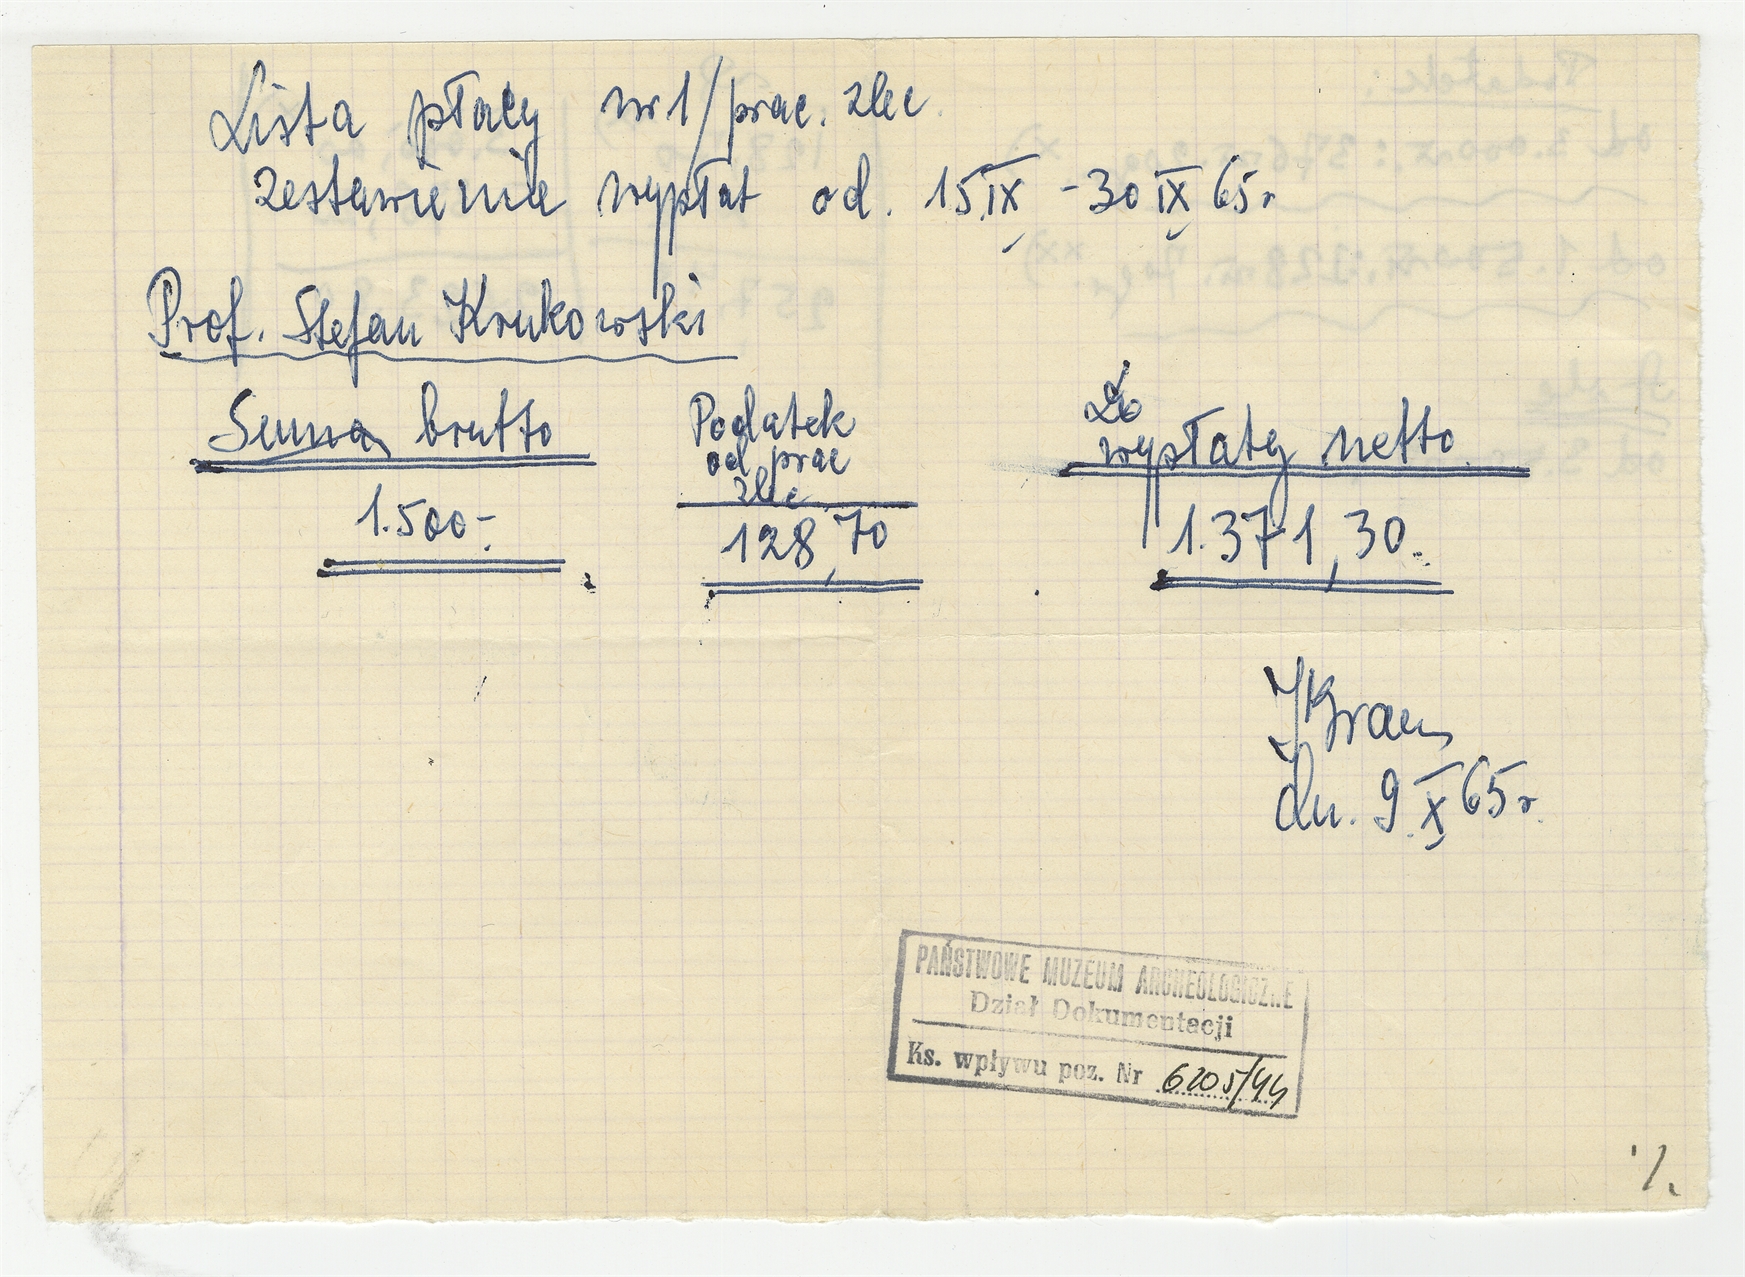 Lista płacy nr 1/prac. zlec.
zestawienie wypłat od. 15.IX - 30 IX 65 r
Prof. Stefan Krukowski
Suma brutto
1.500-
Podatek
od prac
zlec
128,70
Do
wypłaty netto
1.371,30.
dn. 9.X 65 r.
PAŃSTWOWE MUZEUM ARCHEOLOGICZNE
Dział Dokumentacji
Ks. wpływu poz. Nr 6205/44